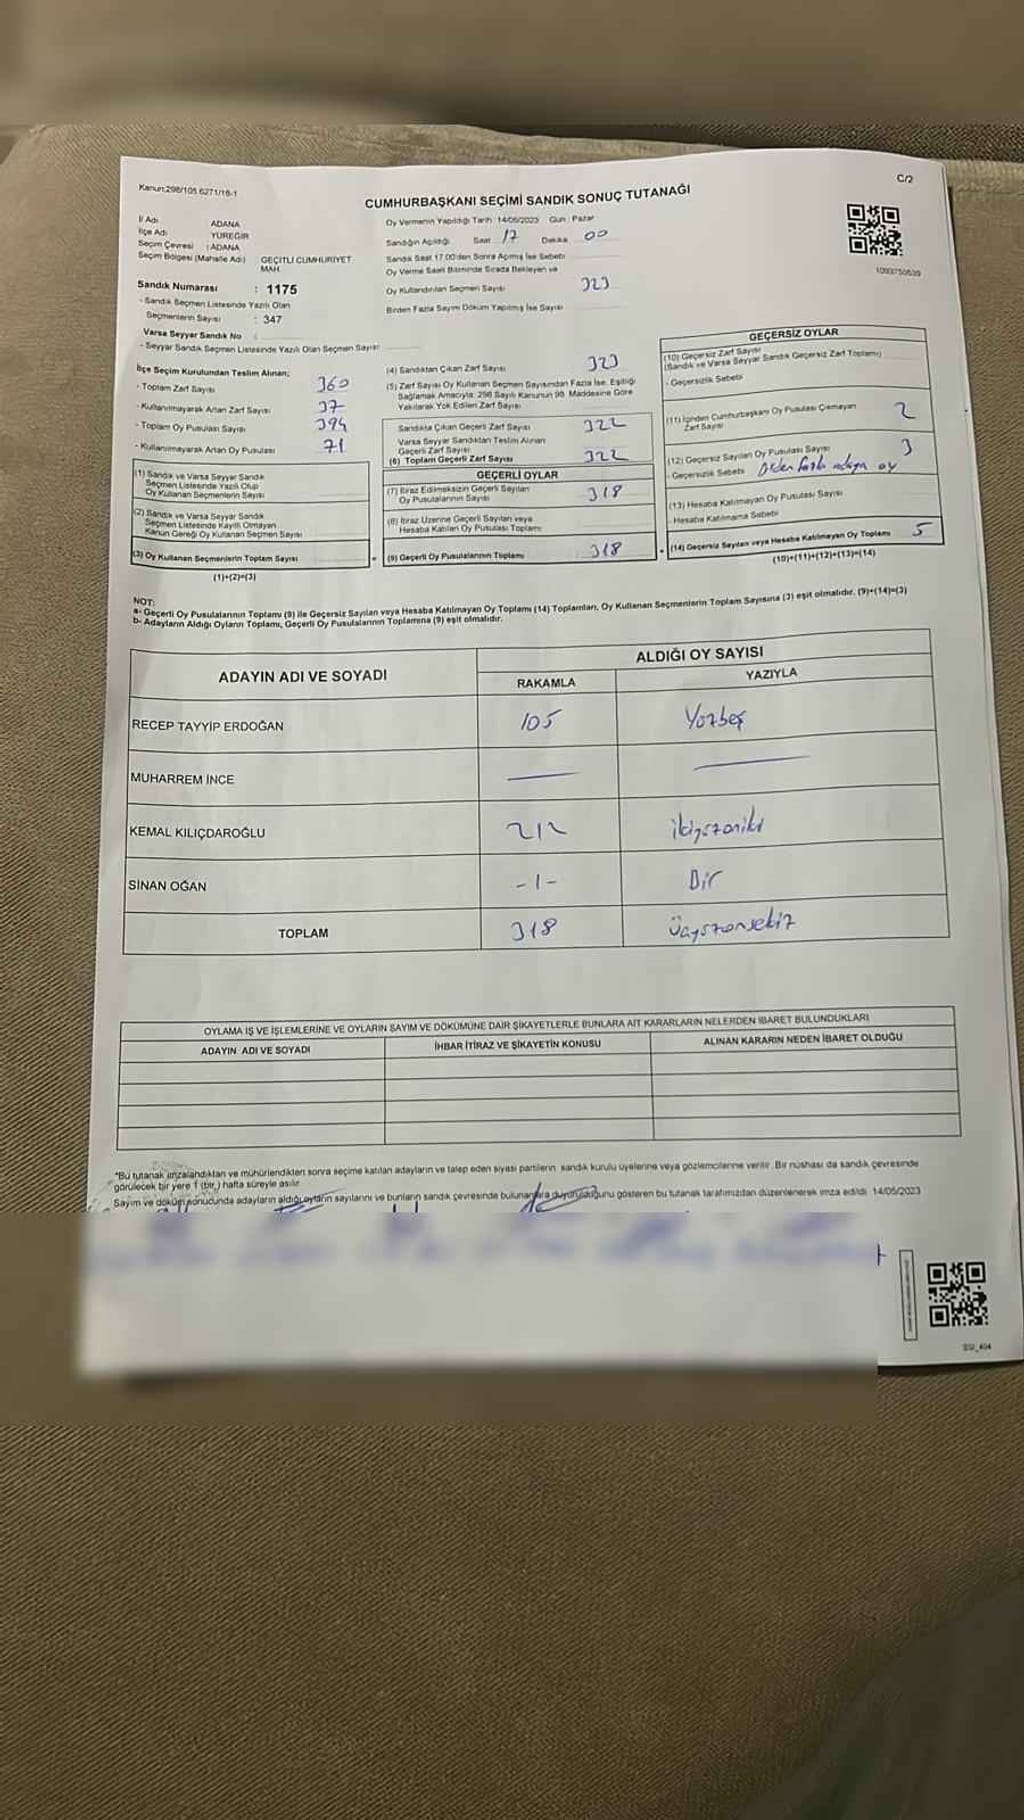 Kanun:298/105 6271/18-1
C/2
CUMHURBAŞKANI SEÇİMİ SANDIK SONUÇ TUTANAĞI
İl Adı ADANA
İlçe Adı YÜREĞİR
Seçim Çevresi : ADANA
Seçim Bölgesi (Mahalle Adı) GEÇİTLİ CUMHURİYET MAH.
Sandık Numarası : 1175
- Sandık Seçmen Listesinde Yazılı Olan
Seçmenlerin Sayısı : 347
Varsa Seyyar Sandık No
- Seyyar Sandık Seçmen Listesinde Yazılı Olan Seçmen Sayısı
Oy Vermenin Yapıldığı Tarih 14/05/2023 Gün : Pazar
Sandığın Açıldığı Saat 17 Dakika 00
Sandık Saat 17.00'den Sonra Açılmış İse Sebebi
Oy Verme Saati Bitiminde Sırada Bekleyen ve
Oy Kullandırılan Seçmen Sayısı 323
Birden Fazla Sayım Döküm Yapılmış İse Sayısı
1093750639
İlçe Seçim Kurulundan Teslim Alınan;
- Toplam Zarf Sayısı 360
- Kullanılmayarak Artan Zarf Sayısı 37
- Toplam Oy Pusulası Sayısı 394
- Kullanılmayarak Artan Oy Pusulası 71
(1) Sandık ve Varsa Seyyar Sandık
Seçmen Listesinde Yazılı Olup
Oy Kullanan Seçmenlerin Sayısı
(2) Sandık ve Varsa Seyyar Sandık
Seçmen Listesinde Kayıtlı Olmayan
Kanun Gereği Oy Kullanan Seçmen Sayısı
(3) Oy Kullanan Seçmenlerin Toplam Sayısı
(1)+(2)=(3)
(4) Sandıktan Çıkan Zarf Sayısı 323
(5) Zarf Sayısı Oy Kullanan Seçmen Sayısından Fazla İse, Eşitliği
Sağlamak Amacıyla; 298 Sayılı Kanunun 98. Maddesine Göre
Yakılarak Yok Edilen Zarf Sayısı
Sandıkta Çıkan Geçerli Zarf Sayısı 322
Varsa Seyyar Sandıktan Teslim Alınan
Geçerli Zarf Sayısı
(6) Toplam Geçerli Zarf Sayısı 322
GEÇERLİ OYLAR
(7) İtiraz Edilmeksizin Geçerli Sayılan
Oy Pusulalarının Sayısı 318
(8) İtiraz Üzerine Geçerli Sayılan veya
Hesaba Katılan Oy Pusulası Toplamı
(9) Geçerli Oy Pusulalarının Toplamı 318
GEÇERSİZ OYLAR
(10) Geçersiz Zarf Sayısı
(Sandık ve Varsa Seyyar Sandık Geçersiz Zarf Toplamı)
- Geçersizlik Sebebi
(11) İçinden Cumhurbaşkanı Oy Pusulası Çıkmayan
Zarf Sayısı 2
(12) Geçersiz Sayılan Oy Pusulası Sayısı 3
- Geçersizlik Sebebi Birden fazla adaya oy
(13) Hesaba Katılmayan Oy Pusulası Sayısı
- Hesaba Katılmama Sebebi
(14) Geçersiz Sayılan veya Hesaba Katılmayan Oy Toplamı 5
(10)+(11)+(12)+(13)=(14)
NOT:
a- Geçerli Oy Pusulalarının Toplamı (9) ile Geçersiz Sayılan veya Hesaba Katılmayan Oy Toplamı (14) Toplamları, Oy Kullanan Seçmenlerin Toplam Sayısına (3) eşit olmalıdır. (9)+(14)=(3)
b- Adayların Aldığı Oyların Toplamı, Geçerli Oy Pusulalarının Toplamına (9) eşit olmalıdır.
ADAYIN ADI VE SOYADI
ALDIĞI OY SAYISI
RAKAMLA YAZIYLA
RECEP TAYYİP ERDOĞAN 105 Yüzbeş
MUHARREM İNCE — —
KEMAL KILIÇDAROĞLU 212 ikiyüzoniki
SİNAN OĞAN -1- Bir
TOPLAM 318 Üçyüzonsekiz
OYLAMA İŞ VE İŞLEMLERİNE VE OYLARIN SAYIM VE DÖKÜMÜNE DAİR ŞİKAYETLERLE BUNLARA AİT KARARLARIN NELERDEN İBARET BULUNDUKLARI
ADAYIN ADI VE SOYADI İHBAR İTİRAZ VE ŞİKAYETİN KONUSU ALINAN KARARIN NEDEN İBARET OLDUĞU
*Bu tutanak imzalandıktan ve mühürlendikten sonra seçime katılan adayların ve talep eden siyasi partilerin sandık kurulu üyelerine veya gözlemcilerine verilir. Bir nüshası da sandık çevresinde
görülecek bir yere 1 (bir) hafta süreyle asılır.
Sayım ve döküm sonucunda adayların aldığı oyların sayılarını ve bunların sandık çevresinde bulunanlara duyurulduğunu gösteren bu tutanak tarafımızdan düzenlenerek imza edildi. 14/05/2023